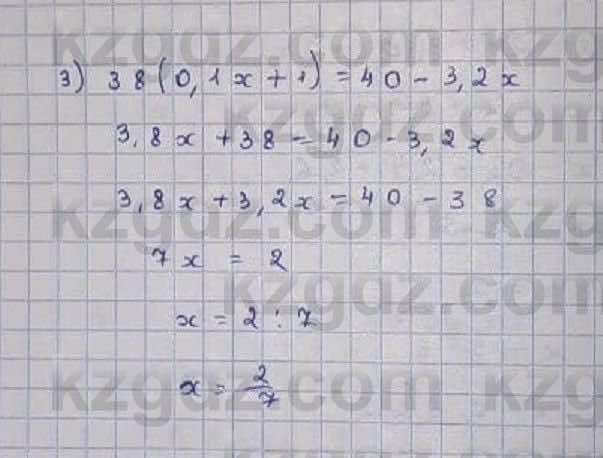 3) 38(0,1x+1)=40-3,2x
3,8x+38=40-3,2x
3,8x+3,2x=40-38
7x=2
x=2:7
x=2/7
kzgdz.com
kzgdz.com
kzgdz.com
kzgdz.com